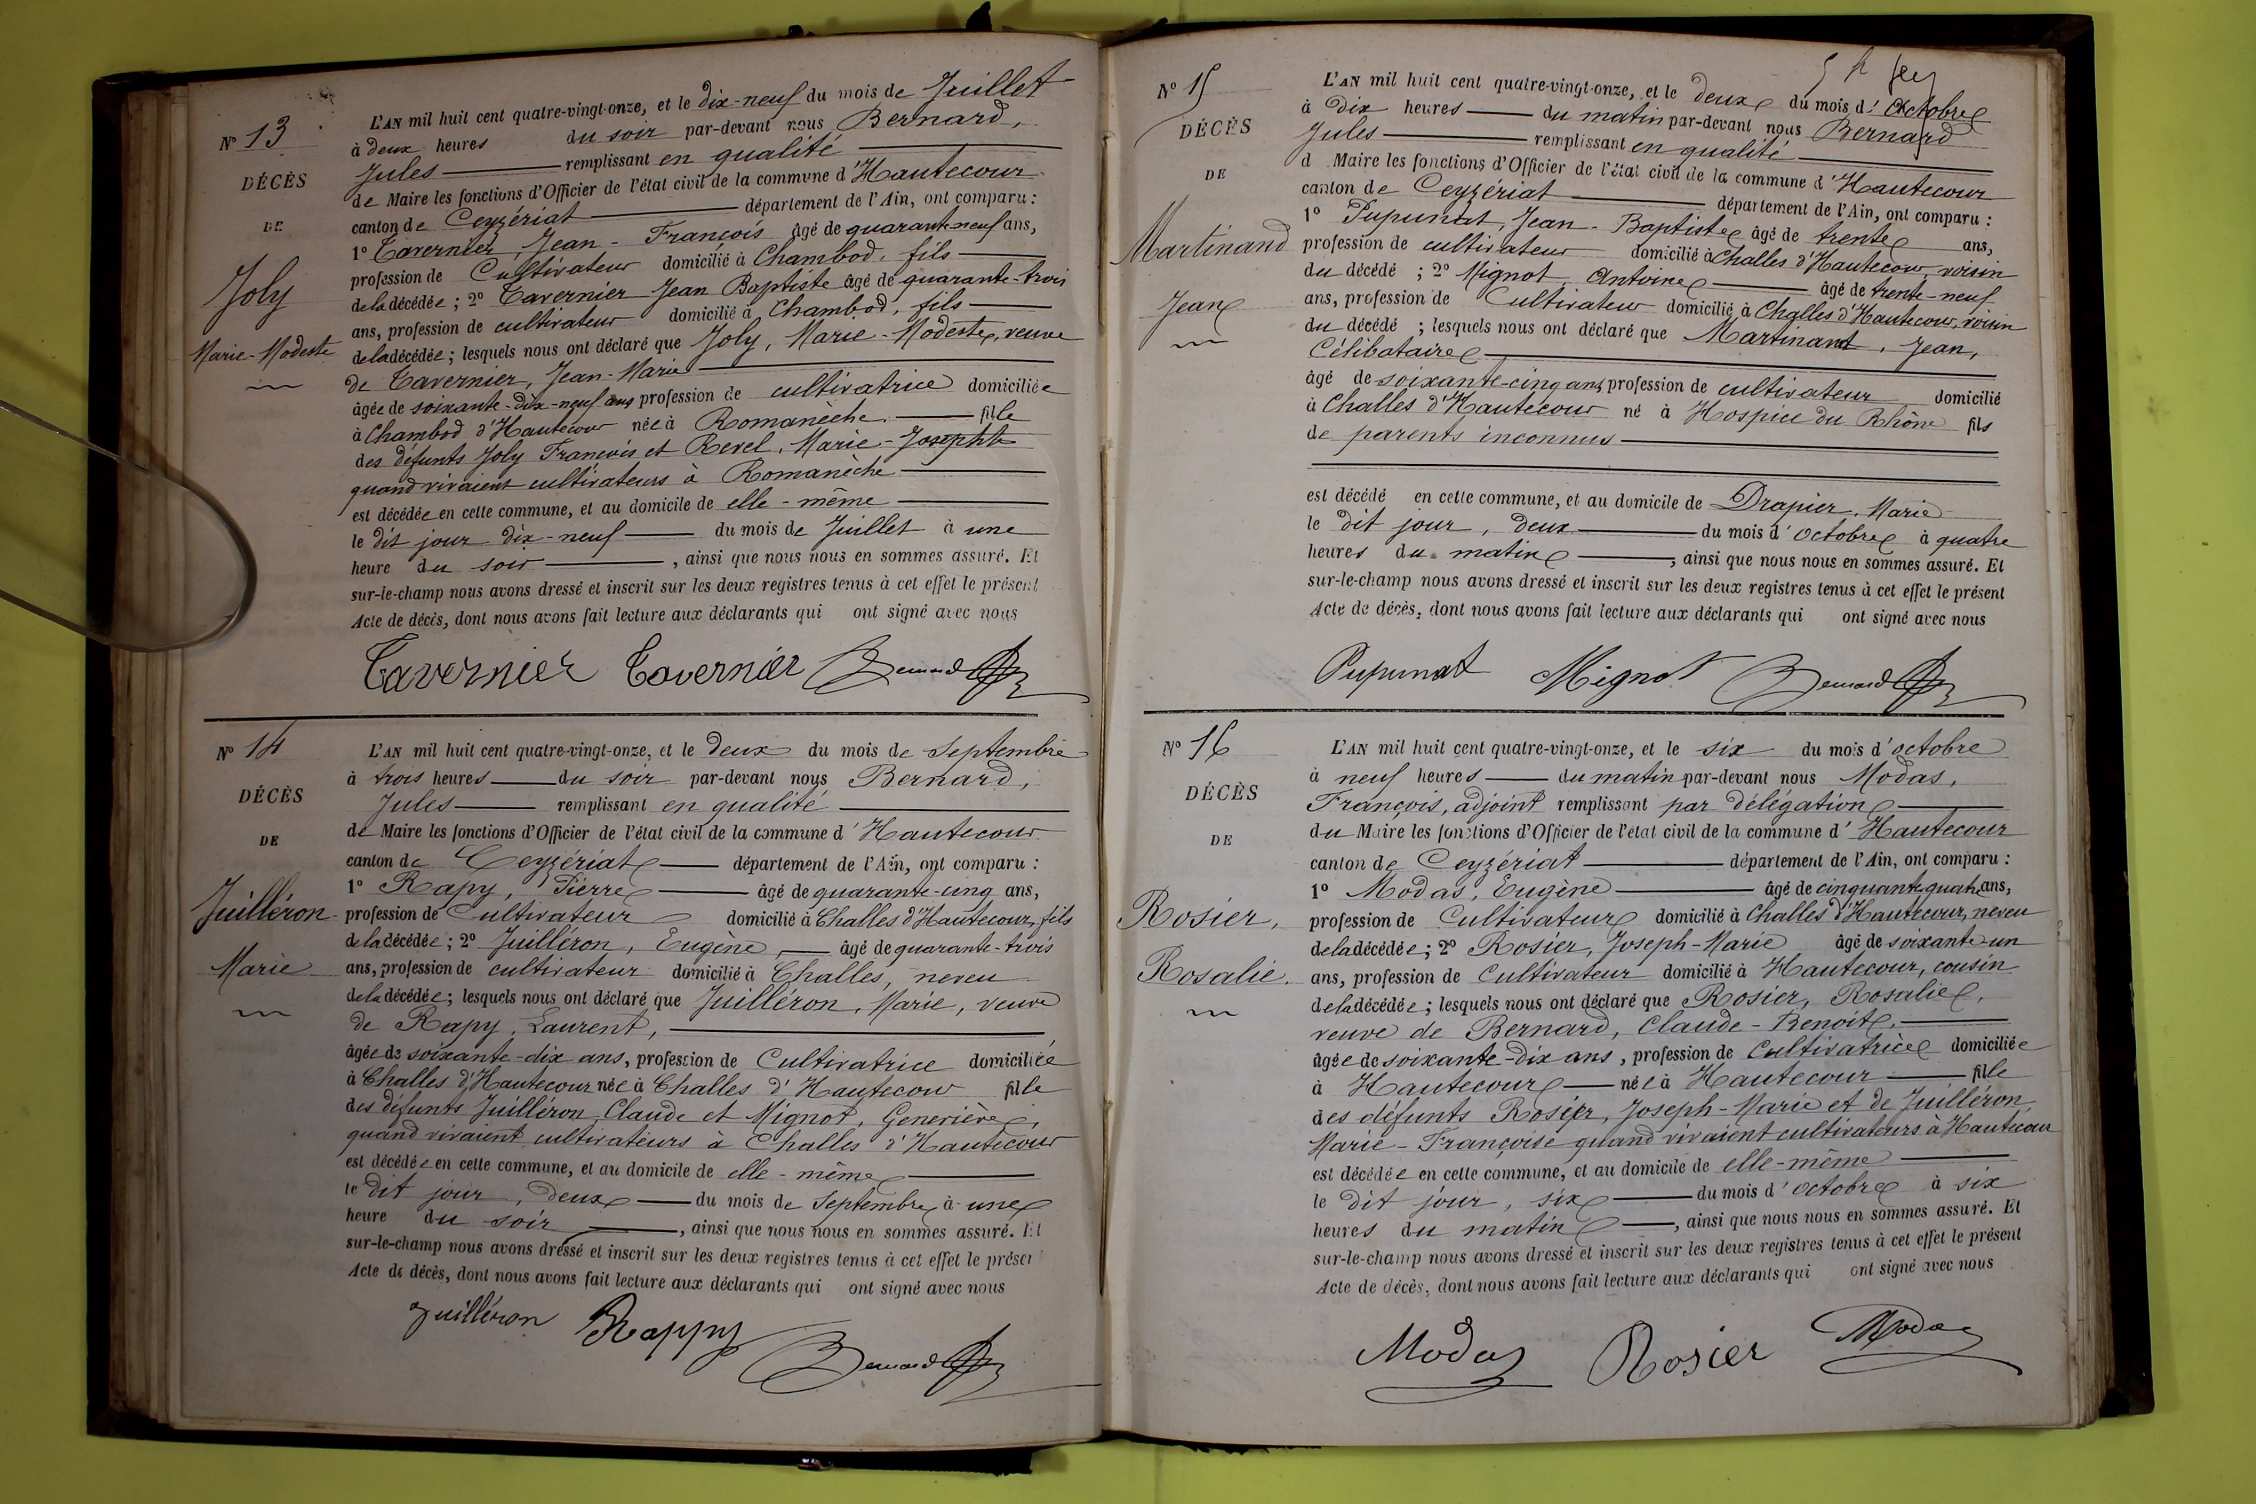 Nº 13
DÉCÈS
DE
Joly
Marie-Modeste
L'AN mil huit cent quatre-vingt-onze, et le dix-neuf du mois de Juillet
à deux heures du soir par-devant nous Bernard,
Jules remplissant en qualité
de Maire les fonctions d'Officier de l'état civil de la commune d'Hautecour
canton de Ceyzériat département de l'Ain, ont comparu :
1º Tavernier, Jean-François âgé de quarante neuf ans,
profession de Cultivateur domicilié à Chambod, fils
de la décédée ; 2º Tavernier Jean Baptiste âgé de quarante-trois
ans, profession de cultivateur domicilié à Chambod, fils
de la décédée ; lesquels nous ont déclaré que Joly, Marie-Modeste, veuve
de Tavernier, Jean-Marie
âgée de soixante-dix-neuf ans profession de cultivatrice domiciliée
à Chambod d'Hautecour née à Romanèche fille
des défunts Joly François et Revel, Marie-Josephte
quand vivaient cultivateurs à Romanèche
est décédée en cette commune, et au domicile de elle-même
le dit jour dix-neuf du mois de Juillet à une
heure du soir, ainsi que nous nous en sommes assuré. Et
sur-le-champ nous avons dressé et inscrit sur les deux registres tenus à cet effet le présent
Acte de décès, dont nous avons fait lecture aux déclarants qui ont signé avec nous
Tavernier Tavernier Bernard
Nº 14
DÉCÈS
DE
Juilléron
Marie
L'AN mil huit cent quatre-vingt-onze, et le deux du mois de Septembre
à trois heures du soir par-devant nous Bernard,
Jules remplissant en qualité
de Maire les fonctions d'Officier de l'état civil de la commune d'Hautecour
canton de Ceyzériat département de l'Ain, ont comparu :
1º Rapy, Pierre âgé de quarante-cinq ans,
profession de Cultivateur domicilié à Challes d'Hautecour, fils
de la décédée ; 2º Juilléron, Eugène, âgé de quarante-trois
ans, profession de cultivateur domicilié à Challes, neveu
de la décédée ; lesquels nous ont déclaré que Juilléron, Marie, veuve
de Rapy, Laurent,
âgée de soixante-dix ans, profession de Cultivatrice domiciliée
à Challes d'Hautecour née à Challes d'Hautecour fille
des défunts Juilléron Claude et Mignot, Geneviève,
quand vivaient cultivateurs à Challes d'Hautecour
est décédée en cette commune, et au domicile de elle-même
le dit jour, deux du mois de Septembre à une
heure du soir, ainsi que nous nous en sommes assuré. Et
sur-le-champ nous avons dressé et inscrit sur les deux registres tenus à cet effet le présen
Acte de décès, dont nous avons fait lecture aux déclarants qui ont signé avec nous
Juilléron Rappy Bernard
Nº 15
DÉCÈS
DE
Martinand
Jean
L'AN mil huit cent quatre-vingt-onze, et le deux du mois d'Octobre
à dix heures du matin par-devant nous Bernard
Jules remplissant en qualité
d Maire les fonctions d'Officier de l'état civil de la commune d'Hautecour
canton de Ceyzériat département de l'Ain, ont comparu :
1º Pupunat, Jean-Baptiste âgé de trente ans,
profession de cultivateur domicilié à Challes d'Hautecour, voisin
du décédé ; 2º Mignot, Antoine âgé de trente-neuf
ans, profession de Cultivateur domicilié à Challes d'Hautecour, voisin
du décédé ; lesquels nous ont déclaré que Martinand, Jean,
Célibataire
âgé de soixante-cinq ans profession de cultivateur domicilié
à Challes d'Hautecour né à Hospice du Rhône fils
de parents inconnus
est décédé en cette commune, et au domicile de Drapier, Marie
le dit jour, deux du mois d'octobre à quatre
heures du matin, ainsi que nous nous en sommes assuré. Et
sur-le-champ nous avons dressé et inscrit sur les deux registres tenus à cet effet le présent
Acte de décès, dont nous avons fait lecture aux déclarants qui ont signé avec nous
Pupunat Mignot Bernard
Nº 16
DÉCÈS
DE
Rosier,
Rosalie.
L'AN mil huit cent quatre-vingt-onze, et le six du mois d'octobre
à neuf heures du matin par-devant nous Modas,
François, adjoint remplissant par délégation
du Maire les fonctions d'Officier de l'état civil de la commune d'Hautecour
canton de Ceyzériat département de l'Ain, ont comparu :
1º Modas, Eugène âgé de cinquante quatre ans,
profession de Cultivateur domicilié à Challes d'Hautecour, neveu
de la décédée ; 2º Rosier, Joseph-Marie âgé de soixante-un
ans, profession de Cultivateur domicilié à Hautecour, cousin
de la décédée ; lesquels nous ont déclaré que Rosier, Rosalie,
veuve de Bernard, Claude-Benoit,
âgée de soixante-dix ans, profession de Cultivatrice domiciliée
à Hautecour née à Hautecour fille
des défunts Rosier, Joseph-Marie et de Juilléron
Marie-Françoise quand vivaient cultivateurs à Hautecour
est décédée en cette commune, et au domicile de elle-même
le dit jour, six du mois d'octobre à six
heures du matin, ainsi que nous nous en sommes assuré. Et
sur-le-champ nous avons dressé et inscrit sur les deux registres tenus à cet effet le présent
Acte de décès, dont nous avons fait lecture aux déclarants qui ont signé avec nous
Modas Rosier Modas